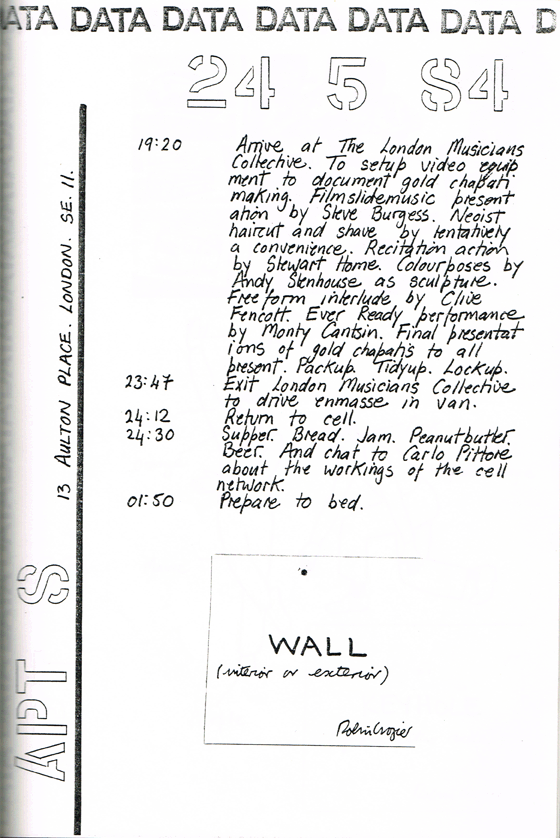 ATA DATA DATA DATA DATA DATA D
24 5 84
19:20 Arrive at The London Musicians
Collective. To setup video equip
ment to document gold chapati
making. Filmslidemusic present
ation by Steve Burgess. Neoist
haircut and shave by tentatively
a convenience. Recitation action
by Stewart Home. Colourposes by
Andy Stenhouse as sculpture.
Free form interlude by Clive
Fencott. Ever Ready performance
by Monty Cantsin. Final presentat
ions of gold chapatis to all
present. Packup. Tidyup. Lockup.
23:47 Exit London Musicians Collective
to drive enmasse in van.
24:12 Return to cell.
24:30 Supper. Bread. Jam. Peanutbutter.
Beer. And chat to Carlo Pittore
about the workings of the cell
network.
01:50 Prepare to bed.
13 AULTON PLACE. LONDON. SE. 11.
APT S
WALL
(interior or exterior)
Robin Crozier